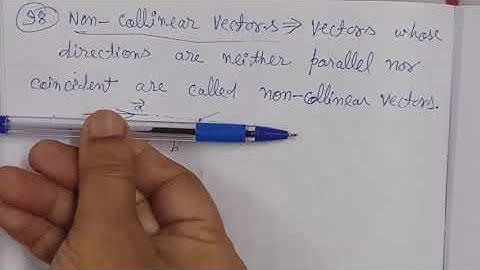 98 Non-collinear vectors ⇒ vectors whose
directions are neither parallel nor
coincident are called non-collinear vectors.
a
b